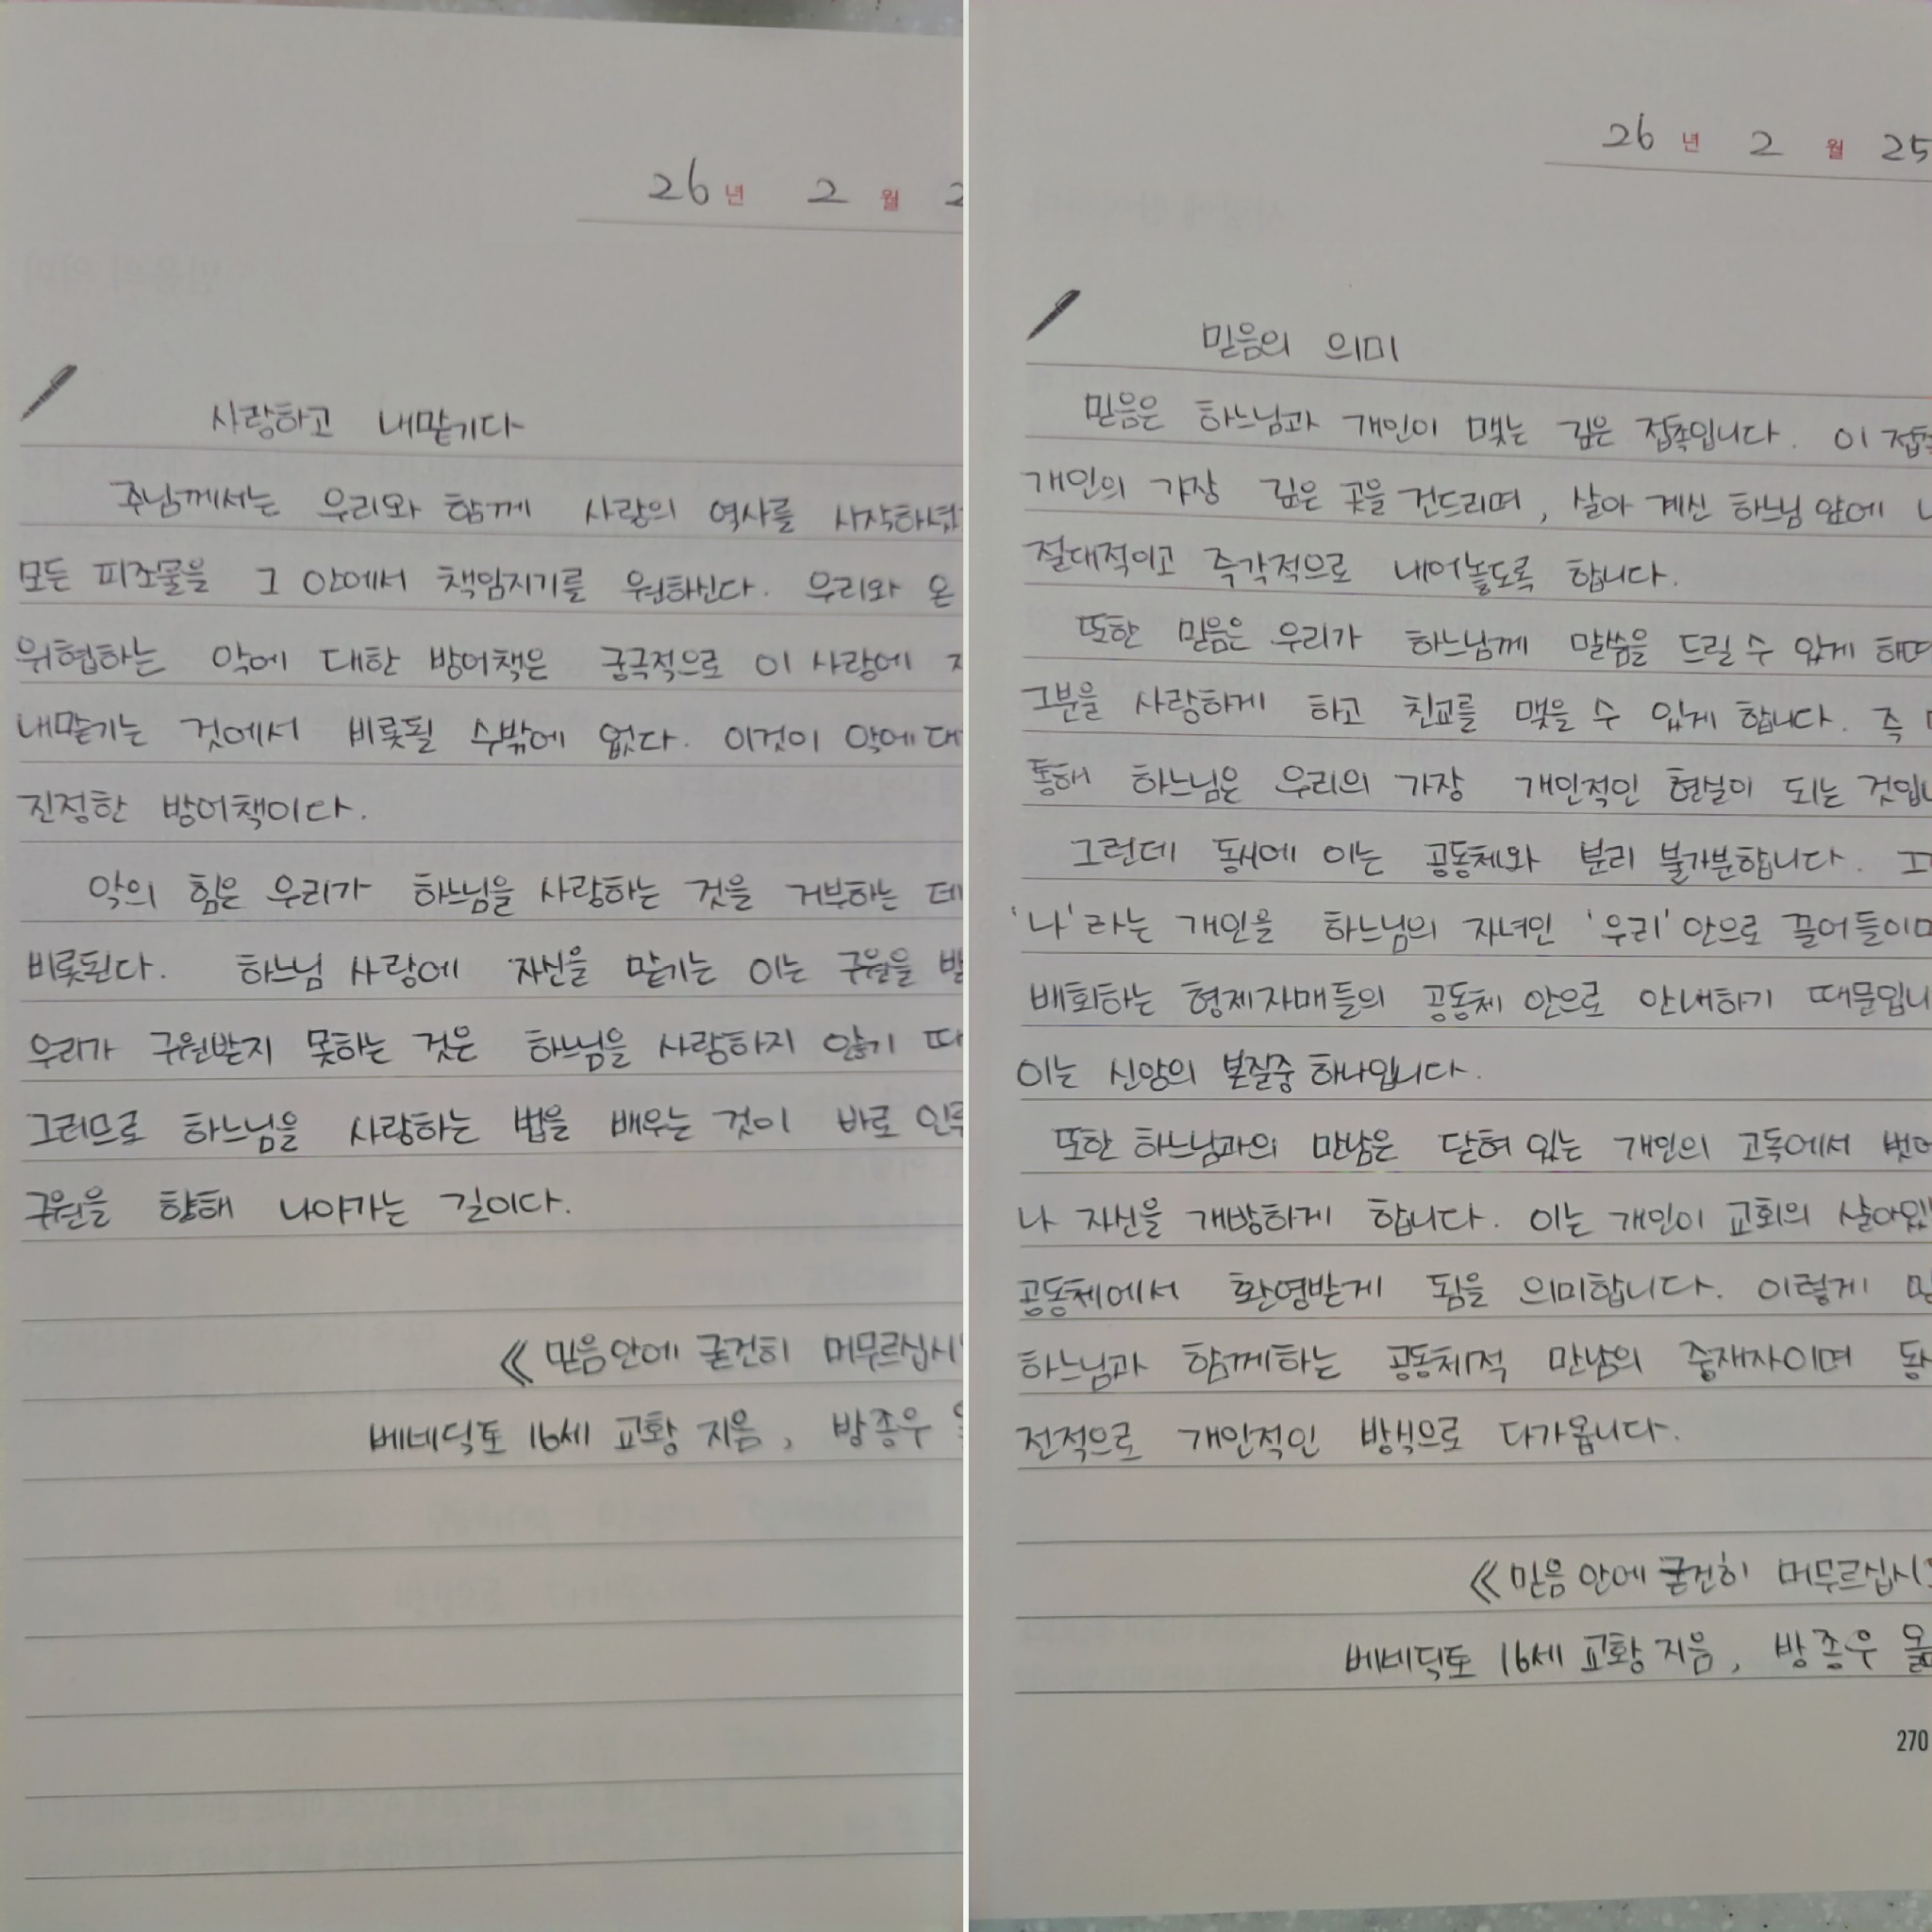 26 년 2 월
사랑하고 내맡기다
주님께서는 우리와 함께 사랑의 역사를 시작하셨
모든 피조물을 그 안에서 책임지기를 원하신다. 우리와 온
위협하는 악에 대한 방어책은 궁극적으로 이 사랑에
내맡기는 것에서 비롯될 수밖에 없다. 이것이 악에 대
진정한 방어책이다.
악의 힘은 우리가 하느님을 사랑하는 것을 거부하는 데
비롯된다. 하느님 사랑에 자신을 맡기는 이는 구원을
우리가 구원받지 못하는 것은 하느님을 사랑하지 않기 때
그러므로 하느님을 사랑하는 법을 배우는 것이 바로 인
구원을 향해 나아가는 길이다.
《 믿음안에 굳건히 머무르십시
베네딕토 16세 교황 지음, 방종우
26 년 2 월 25
믿음의 의미
믿음은 하느님과 개인이 맺는 깊은 접촉입니다. 이 접촉
개인의 가장 깊은 곳을 건드리며, 살아 계신 하느님 앞에
절대적이고 즉각적으로 내어놓도록 합니다.
또한 믿음은 우리가 하느님께 말씀을 드릴 수 있게 하며
그분을 사랑하게 하고 친교를 맺을 수 있게 합니다. 즉
통해 하느님은 우리의 가장 개인적인 현실이 되는 것입니
그런데 동시에 이는 공동체와 분리 불가분합니다.
'나'라는 개인을 하느님의 자녀인 '우리' 안으로 끌어들이며
배회하는 형제자매들의 공동체 안으로 안내하기 때문입니
이는 신앙의 본질중 하나입니다.
또한 하느님과의 만남은 닫혀 있는 개인의 고독에서 벗어
나 자신을 개방하게 합니다. 이는 개인이 교회의 살아있
공동체에서 환영받게 됨을 의미합니다. 이렇게
하느님과 함께하는 공동체적 만남의 중재자이며
전적으로 개인적인 방식으로 다가옵니다.
《 믿음 안에 굳건히 머무르십시
베네딕토 16세 교황 지음, 방종우 옮
270